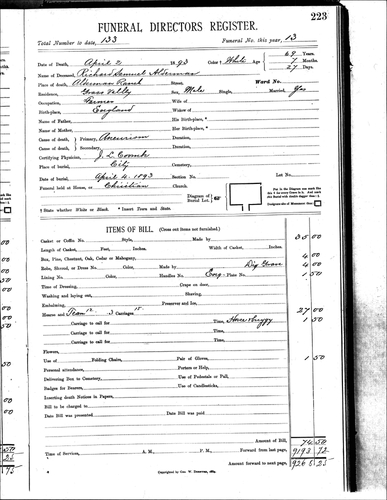 223
FUNERAL DIRECTORS REGISTER.
Total Number to date, 133 Funeral No. this year, 13
Date of Death, April 2 1893 Color † White Age 69 Years.
7 Months.
27 Days.
Name of Deceased, Richard Samuel Alderman
Place of death, Alderman Ranch Street, Ward No.
Residence, Grass Valley Sex, Male Single, Married, Yes
Occupation, Farmer Wife of
Birth-place, England Widow of
Name of Father, His Birth-place, *
Name of Mother, Her Birth-place, *
Cause of death, Primary, Aneurism
Cause of death, Secondary,
Certifying Physician, J. L. Coombs
Place of burial, City Cemetery,
Date of burial, April 4 1893 Section No. Lot No.
Funeral held at House, or Christian Church. Diagram of Burial Lot.
† State whether White or Black. * Insert Town and State.
ITEMS OF BILL. (Cross out items not furnished.)
Casket or Coffin No. Style, Made by 35 00
Length of Casket, Feet, Inches. Width of Casket, Inches.
Box, Pine, Chestnut, Oak, Cedar or Mahogany, 4 00
Robe, Shroud, or Dress No. Color, Made by Dig Grave 4 00
Lining No. Color, Handles No. Eng. Plate No. 1 50
Time of Dressing, Crape on door,
Washing and laying out, Shaving,
Embalming, Preserver and Ice,
Hearse and Team 12 3 Carriages 15 27 00
Carriage to call for Time, Horse & buggy 1 50
Carriage to call for Time,
Carriage to call for Time,
Flowers,
Use of Folding Chairs, Pair of Gloves, 1 50
Personal attendance, Porters or Help,
Delivering Box to Cemetery, Use of Pedestals or Pall,
Badges for Bearers, Use of Candlesticks,
Inserting death Notices in Papers,
Bill to be charged to
Date Bill was presented Date Bill was paid
Amount of Bill, 74 50
Time of Services, A. M., P. M. Forward from last page, 9193 72
Amount forward to next page,